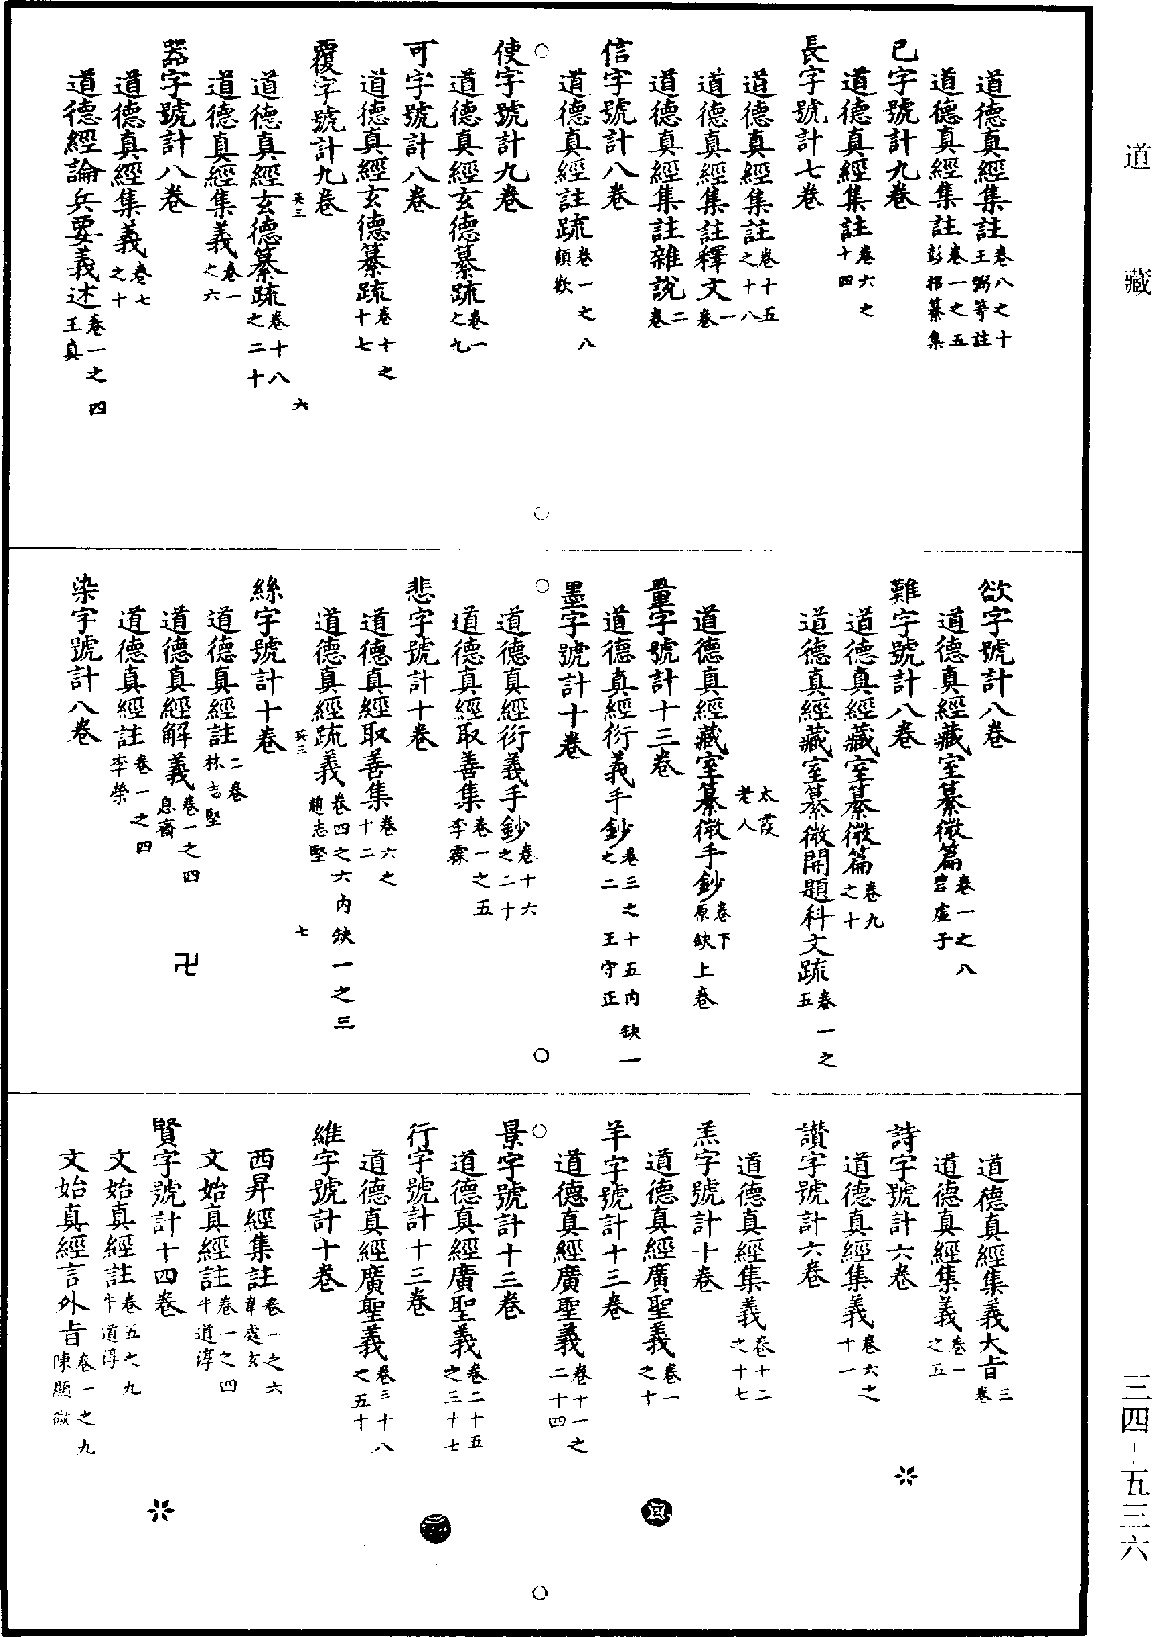 道藏
三四-五三六
道德真經集註卷八之十王弼等註
道德真經集註卷一之五彭耜纂集
已字號計九卷
道德真經集註卷六之十四
長字號計七卷
道德真經集註卷十五之十八
道德真經集註釋文一卷
道德真經集註雜說二卷
信字號計八卷
道德真經註疏卷一之八顧歡
使字號計九卷
道德真經玄德纂疏卷一之九
可字號計八卷
道德真經玄德纂疏卷十之十七
覆字號計九卷
道德真經玄德纂疏卷十八之二十
道德真經集義卷一之六
器字號計八卷
道德真經集義卷七之十
道德經論兵要義述卷一之四王真
六
欲字號計八卷
道德真經藏室纂微篇卷一之八碧虛子
難字號計八卷
道德真經藏室纂微篇卷九之十
道德真經藏室纂微開題科文疏卷一之五
太霞老人
道德真經藏室纂微手鈔卷下原缺上卷
量字號計十三卷
道德真經衍義手鈔卷三之十五內缺一之二王守正
墨字號計十卷
道德真經衍義手鈔卷十六之二十
道德真經取善集卷一之五李霖
悲字號計十卷
道德真經取善集卷六之十二
道德真經疏義卷四之六內缺一之三趙志堅
七
絲字號計十卷
道德真經註二卷林志堅
道德真經解義卷一之四息齋
道德真經註卷一之四李榮
染字號計八卷
卍
道德真經集義大旨三卷
道德真經集義卷一之五
詩字號計六卷
道德真經集義卷六之十一
讚字號計六卷
道德真經集義卷十二之十七
羔字號計十卷
道德真經廣聖義卷一之十
羊字號計十三卷
道德真經廣聖義卷十一之二十四
景字號計十三卷
道德真經廣聖義卷二十五之三十七
行字號計十三卷
道德真經廣聖義卷三十八之五十
維字號計十卷
西昇經集註卷一之六韋處玄
文始真經註卷一之四牛道淳
賢字號計十四卷
文始真經註卷五之九牛道淳
文始真經言外旨卷一之九陳顯微